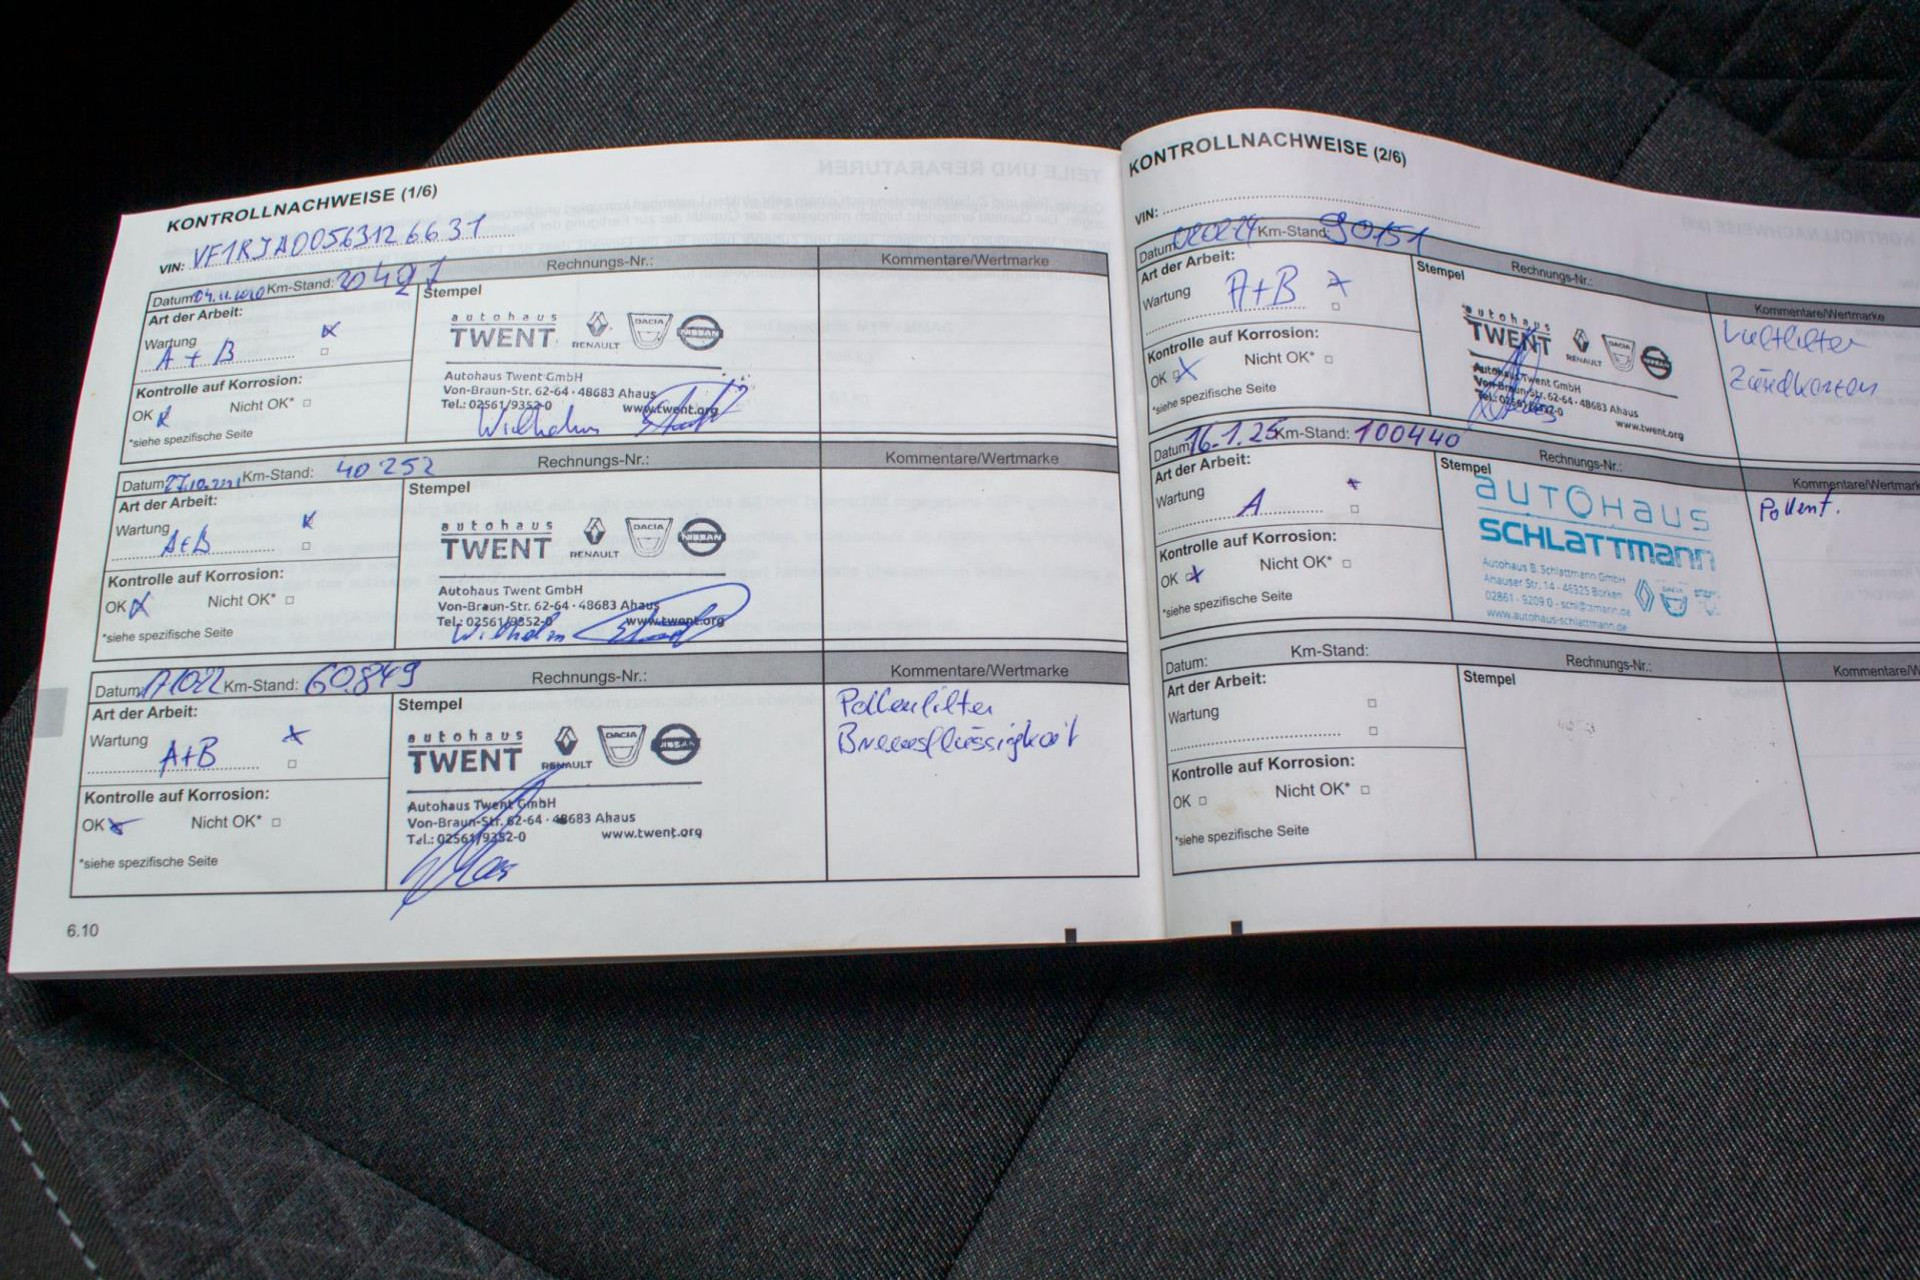 KONTROLLNACHWEISE (1/6)
VIN: VF1RJA00563126631
Datum: 04.11.2020 Km-Stand: 20491 Rechnungs-Nr.: Kommentare/Wertmarke
Art der Arbeit:
Wartung
A + B
Kontrolle auf Korrosion:
OK Nicht OK*
*siehe spezifische Seite
Stempel
autohaus
TWENT
RENAULT DACIA NISSAN
Autohaus Twent GmbH
Von-Braun-Str. 62-64 · 48683 Ahaus
Tel.: 02561/9352-0 www.twent.org
Wilhelm
Datum: 27.10.2021 Km-Stand: 40252 Rechnungs-Nr.: Kommentare/Wertmarke
Art der Arbeit:
Wartung
A+B
Kontrolle auf Korrosion:
OK Nicht OK*
*siehe spezifische Seite
Stempel
autohaus
TWENT
RENAULT DACIA NISSAN
Autohaus Twent GmbH
Von-Braun-Str. 62-64 · 48683 Ahaus
Tel.: 02561/9352-0 www.twent.org
Wilhelm
Datum: Km-Stand: 60.849 Rechnungs-Nr.: Kommentare/Wertmarke
Art der Arbeit:
Wartung
A+B
Kontrolle auf Korrosion:
OK Nicht OK*
*siehe spezifische Seite
Stempel
autohaus
TWENT
RENAULT DACIA NISSAN
Autohaus Twent GmbH
Von-Braun-Str. 62-64 · 48683 Ahaus
Tel.: 02561/9352-0 www.twent.org
Pollenfilter
Bremsflüssigkeit
6.10
KONTROLLNACHWEISE (2/6)
VIN:
Datum: Km-Stand: 90151 Rechnungs-Nr.: Kommentare/Wertmarke
Art der Arbeit:
Wartung
A+B
Kontrolle auf Korrosion:
OK Nicht OK*
*siehe spezifische Seite
Stempel
autohaus
TWENT
RENAULT DACIA NISSAN
Autohaus Twent GmbH
Von-Braun-Str. 62-64 · 48683 Ahaus
Tel.: 02561/9352-0
www.twent.org
Luftfilter
Zündkerzen
Datum: 16.1.25 Km-Stand: 100440 Rechnungs-Nr.: Kommentare/Wertmark
Art der Arbeit:
Wartung
A
Kontrolle auf Korrosion:
OK Nicht OK*
*siehe spezifische Seite
Stempel
autohaus
SCHLATTMANN
Autohaus B. Schlattmann GmbH
Ahauser Str. 14 - 46325 Borken
02861 - 9209 0 - schlattmann.de
www.autohaus-schlattmann.de
Pollenf.
Datum: Km-Stand: Rechnungs-Nr.: Kommentare/W
Art der Arbeit:
Wartung
Kontrolle auf Korrosion:
OK Nicht OK*
*siehe spezifische Seite
Stempel